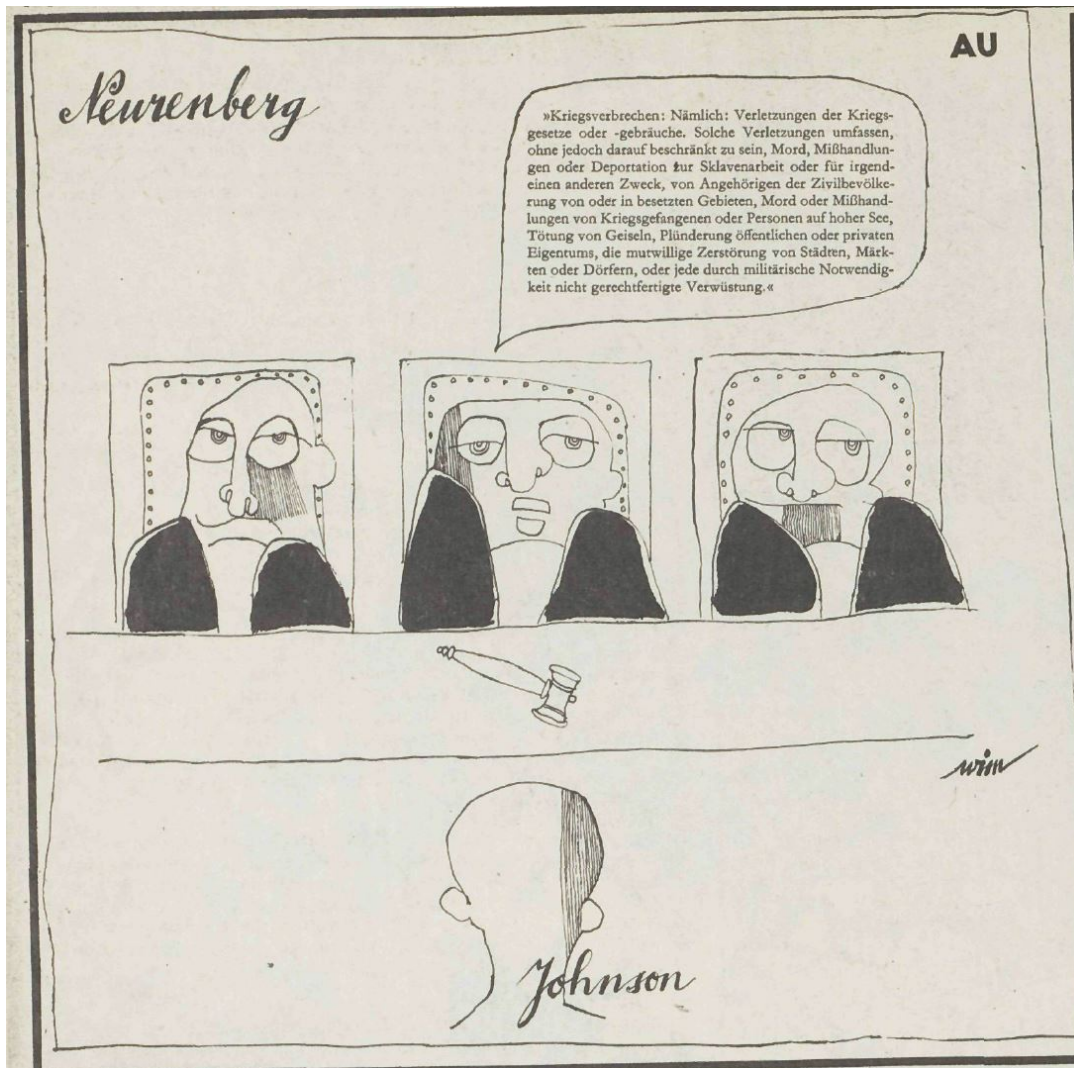 AU
Neurenberg
»Kriegsverbrechen: Nämlich: Verletzungen der Kriegs-
gesetze oder -gebräuche. Solche Verletzungen umfassen,
ohne jedoch darauf beschränkt zu sein, Mord, Mißhandlun-
gen oder Deportation zur Sklavenarbeit oder für irgend-
einen anderen Zweck, von Angehörigen der Zivilbevölke-
rung von oder in besetzten Gebieten, Mord oder Mißhand-
lungen von Kriegsgefangenen oder Personen auf hoher See,
Tötung von Geiseln, Plünderung öffentlichen oder privaten
Eigentums, die mutwillige Zerstörung von Städten, Märk-
ten oder Dörfern, oder jede durch militärische Notwendig-
keit nicht gerechtfertigte Verwüstung.«
wim
Johnson